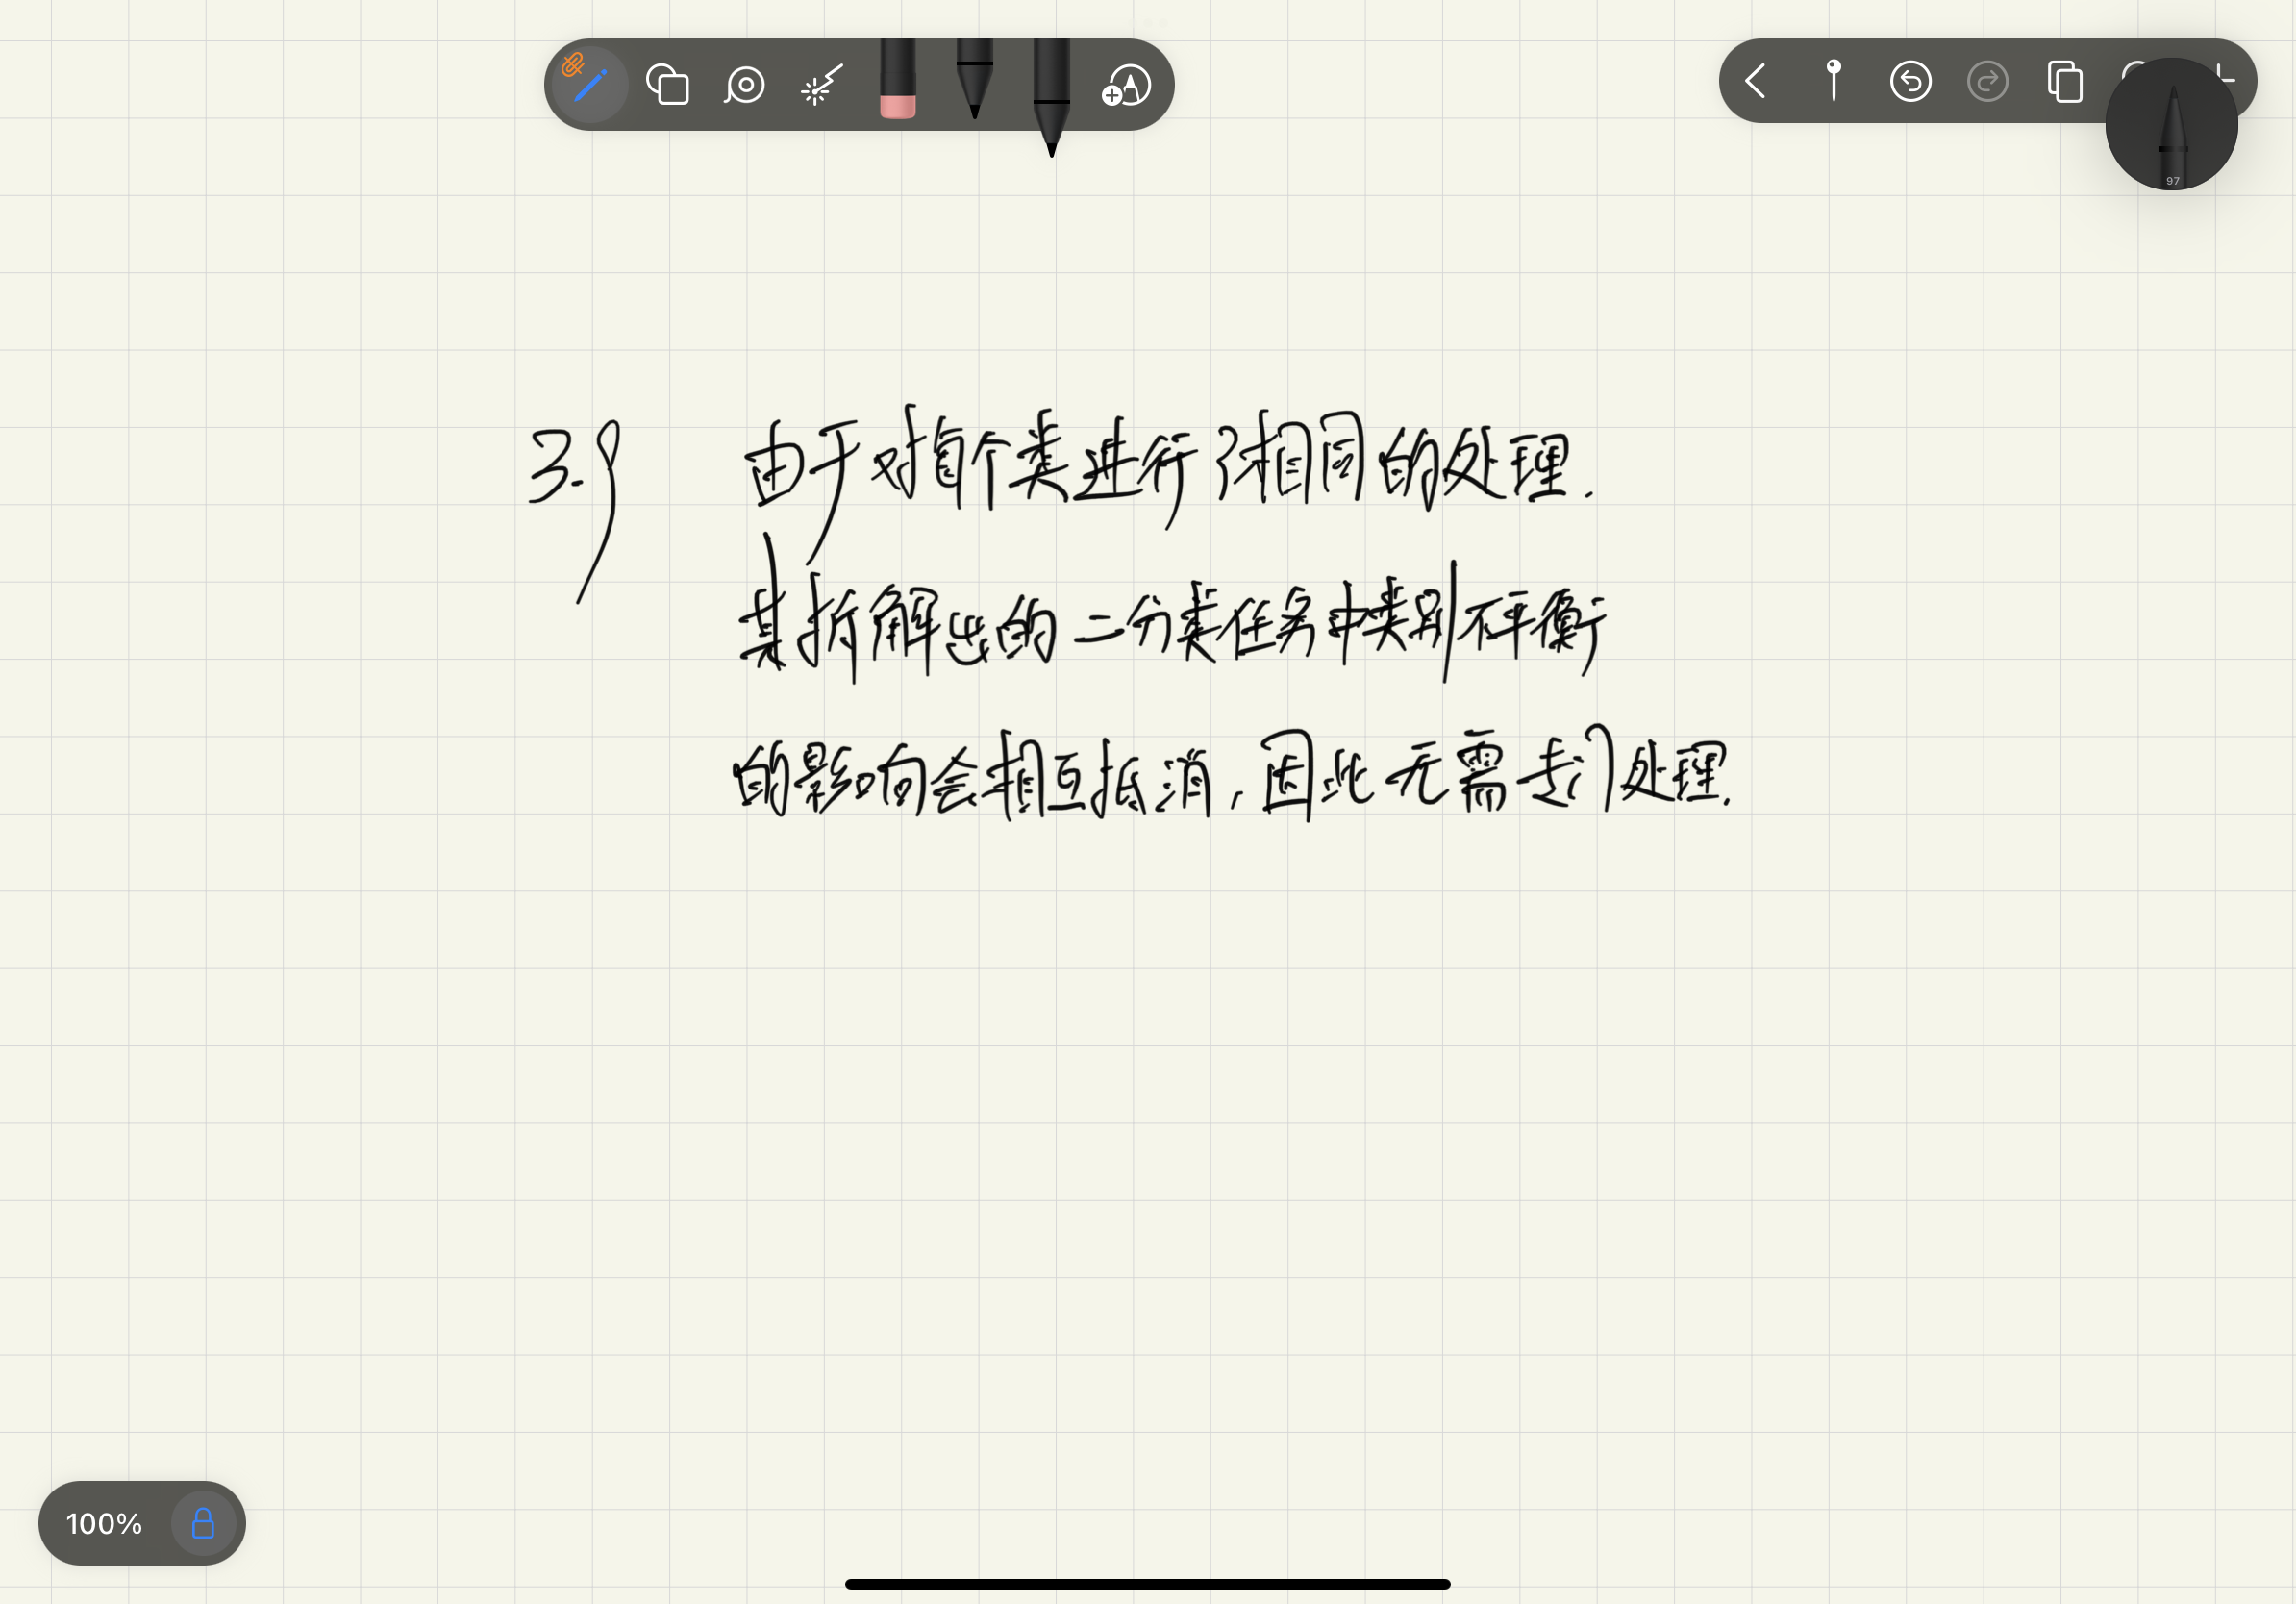 97
3.9 由于对每个类进行了相同的处理.
其拆解出的二分类任务中类别不平衡
的影响会相互抵消,因此无需专门处理.
100%